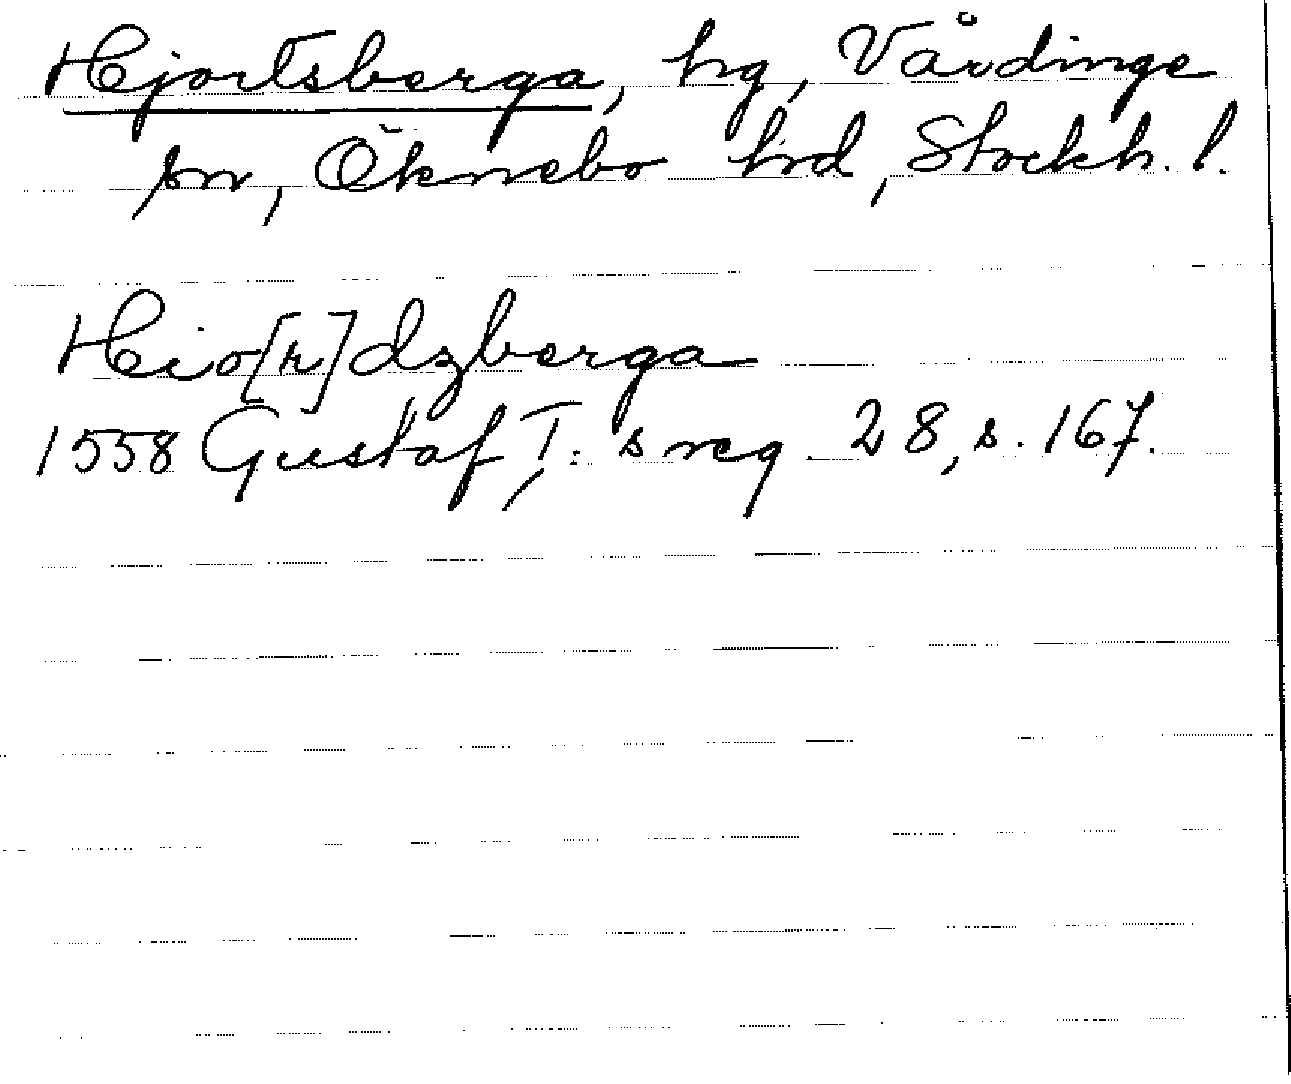 Hjortsberga, hg, Vårdinge
sn, Öknebo hrd, Stockh. l.
Hio[r]dzberga
1558 Gustaf I: s reg 28, s. 167.